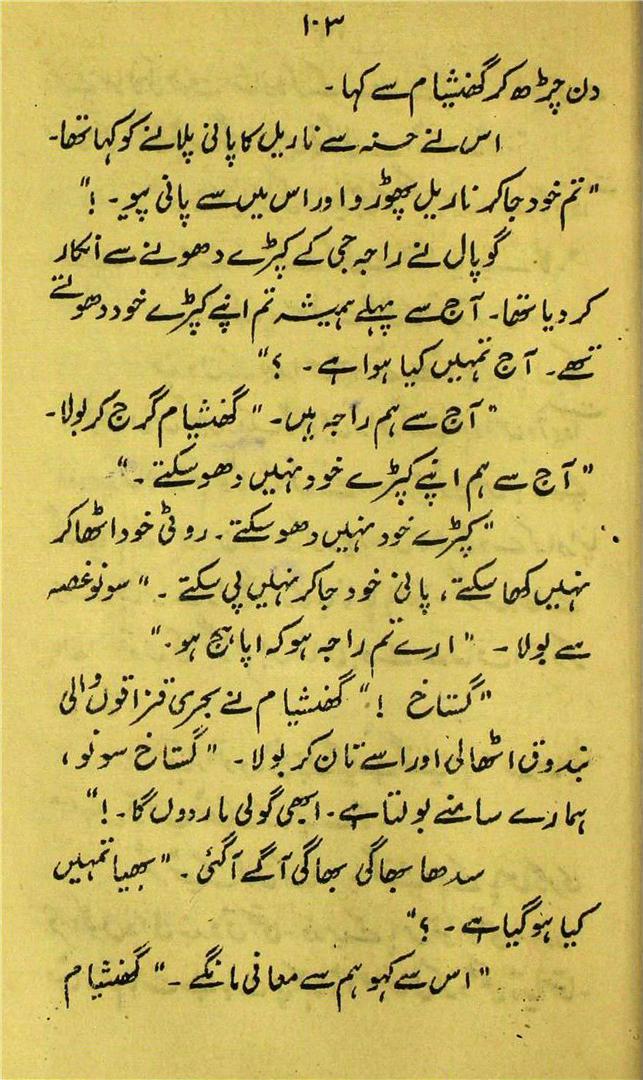 ۱۰۳
دن چڑھ کر گھنشیام سے کہا۔
اس نے حسنہ سے ناریل کا پانی پلانے کو کہا تھا۔
"تم خود جا کر ناریل پھوڑو اور اس میں سے پانی پیو۔ !"
گوپال نے راجہ جی کے کپڑے دھونے سے انکار
کر دیا تھا۔ آج سے پہلے ہمیشہ تم اپنے کپڑے خود دھوتے
تھے۔ آج تمہیں کیا ہوا ہے۔ ؟"
"آج سے ہم راجہ ہیں۔" گھنشیام گرج کر بولا۔
"آج سے ہم اپنے کپڑے خود نہیں دھو سکتے۔"
"کپڑے خود نہیں دھو سکتے۔ روٹی خود اٹھا کر
نہیں کھا سکتے، پانی خود جا کر نہیں پی سکتے۔" سونو غصہ
سے بولا۔ "ارے تم راجہ ہو کہ اپاہج ہو۔"
"گستاخ !" گھنشیام نے بحری قزاقوں والی
بندوق اٹھا لی اور اسے تان کر بولا۔ "گستاخ سونو،
ہمارے سامنے بولتا ہے۔ ابھی گولی مار دوں گا۔ !"
سدھا بھاگی بھاگی آگے آ گئی۔ "بھیا تمہیں
کیا ہو گیا ہے۔ ؟"
"اس سے کہو ہم سے معافی مانگے۔" گھنشیام